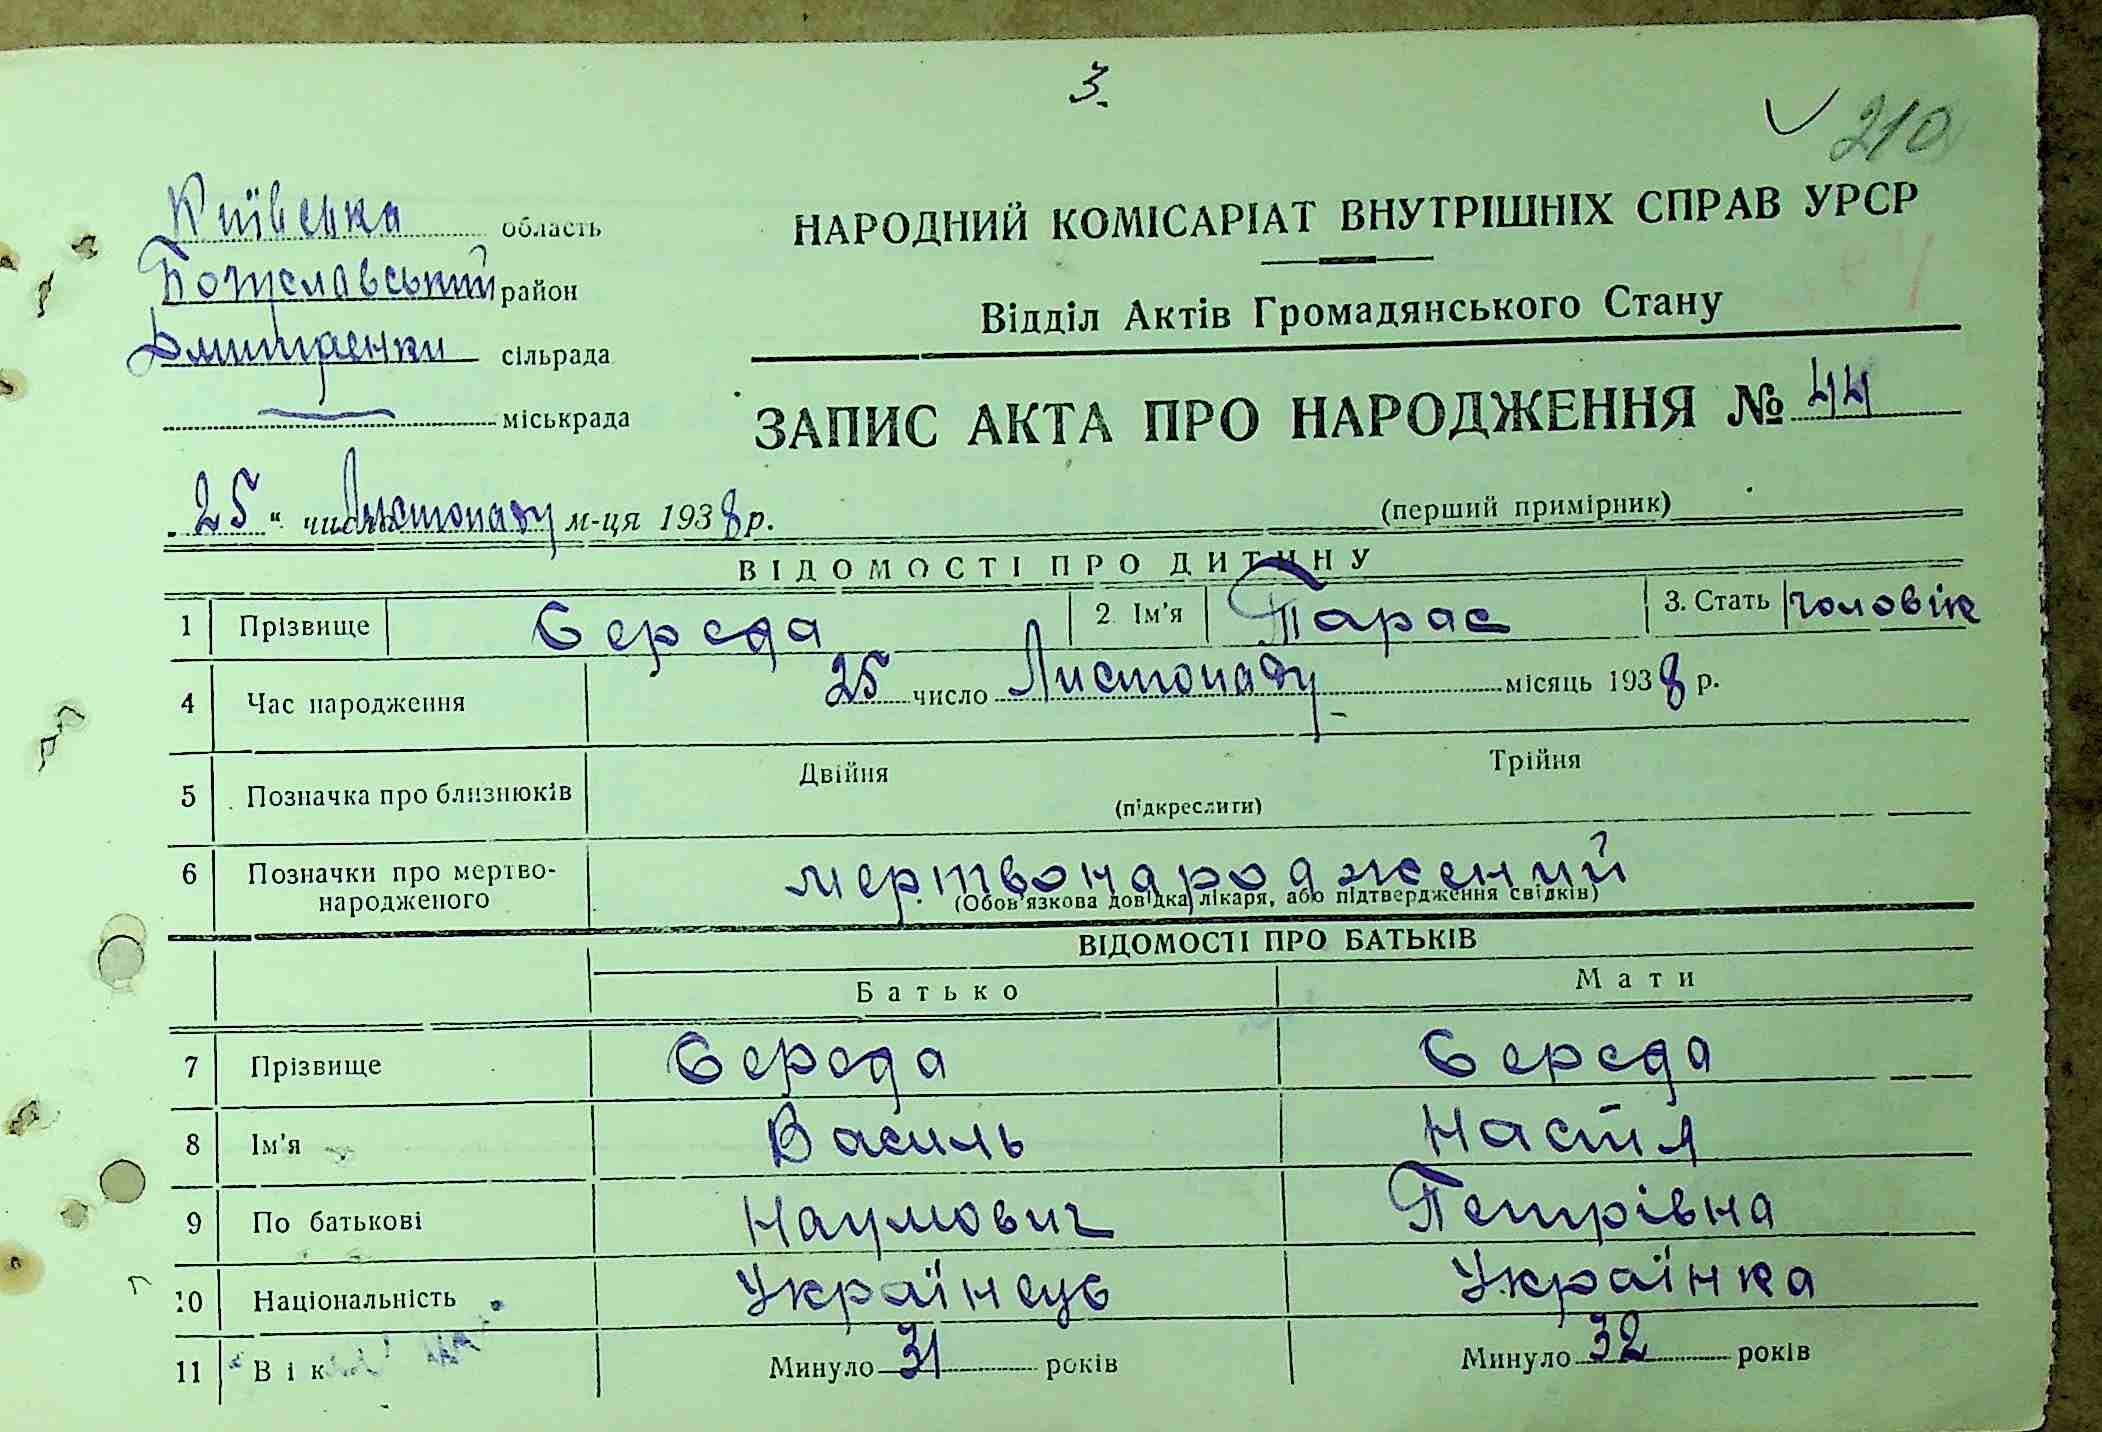 3.
210
Київська область
Богуславський район
Дмитренки сільрада
міськрада
НАРОДНИЙ КОМІСАРІАТ ВНУТРІШНІХ СПРАВ УРСР
Відділ Актів Громадянського Стану
ЗАПИС АКТА ПРО НАРОДЖЕННЯ № 44
(перший примірник)
„25“ числа Листопаду м-ця 1938 р.
ВІДОМОСТІ ПРО ДИТИНУ
1 Прізвище Середа 2. Ім'я Тарас 3. Стать чоловік
4 Час народження 25 число Листопаду місяць 1938 р.
5 Позначка про близнюків Двійня Трійня
(підкреслити)
6 Позначки про мертво-народженого мертвонароджений
(Обов'язкова довідка лікаря, або підтвердження свідків)
ВІДОМОСТІ ПРО БАТЬКІВ
Батько Мати
7 Прізвище Середа Середа
8 Ім'я Василь Настя
9 По батькові Наумович Петрівна
10 Національність Українець Українка
11 Вік Минуло 31 років Минуло 32 років